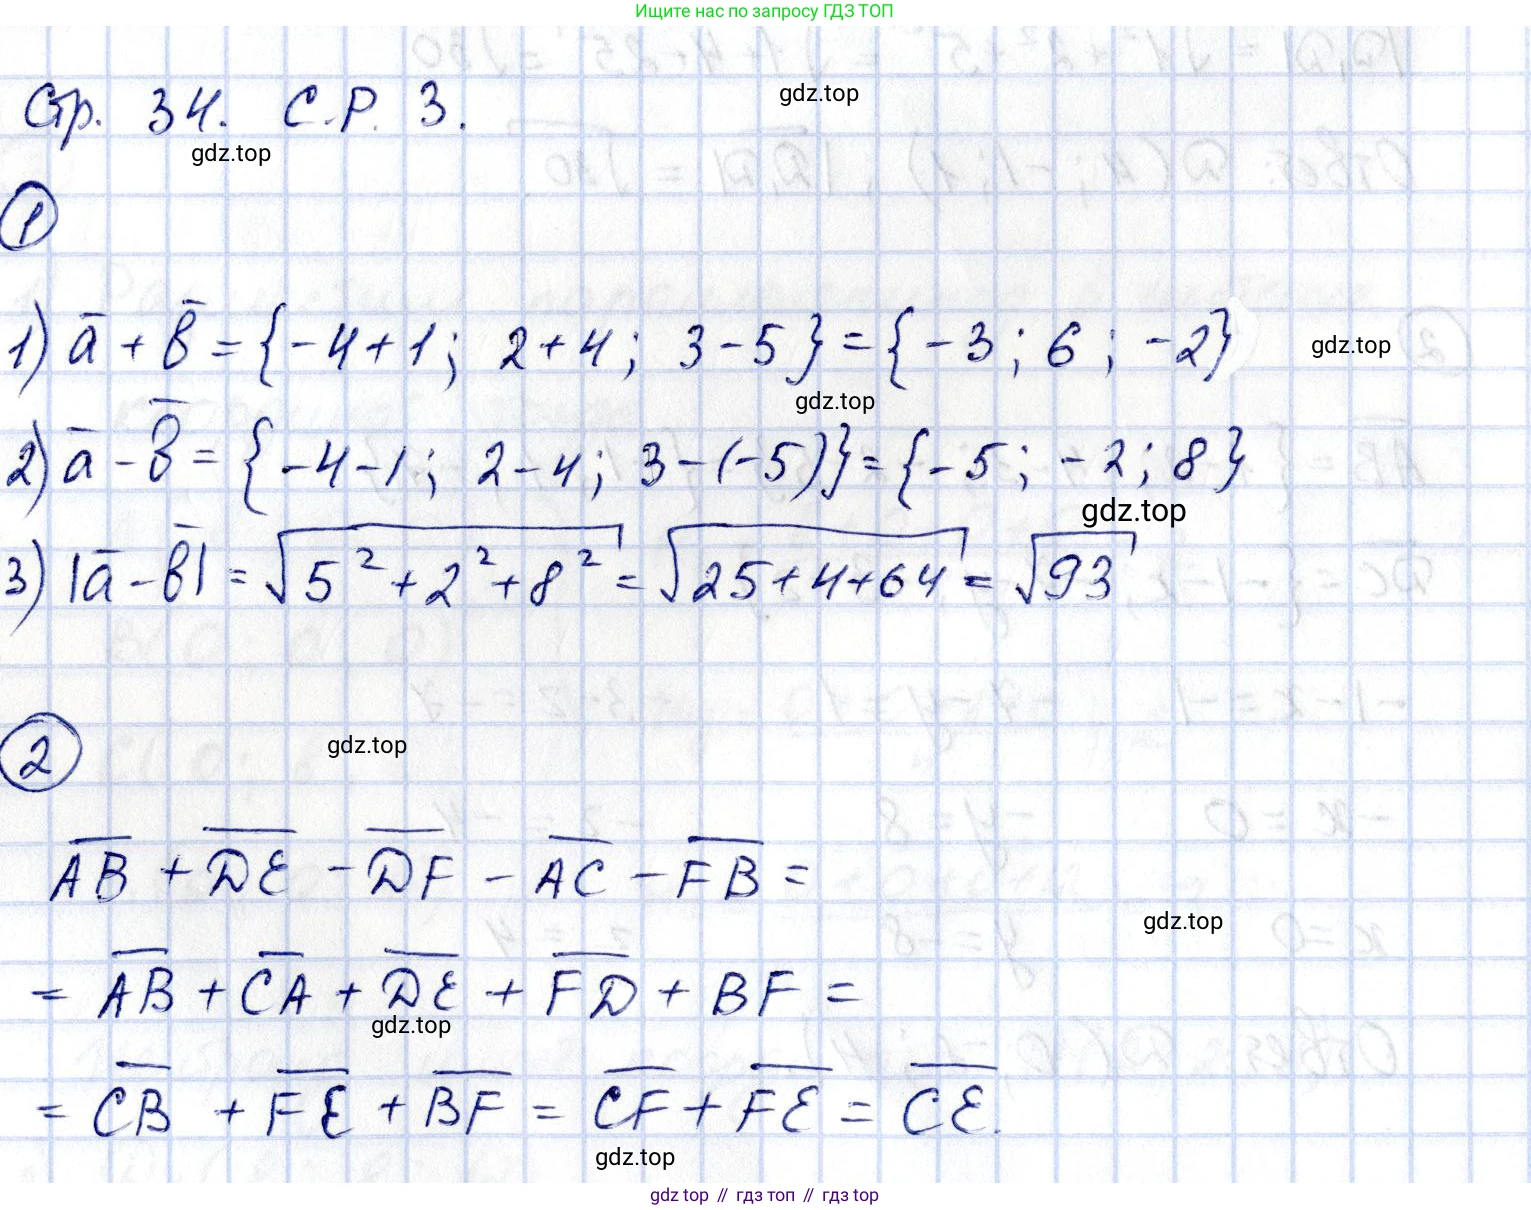 Ищите нас по запросу ГДЗ ТОП
Стр. 34. С.Р. 3.
gdz.top
gdz.top
1
1) a̅ + b̅ = {-4+1; 2+4; 3-5} = {-3; 6; -2}
gdz.top
gdz.top
2) a̅ - b̅ = {-4-1; 2-4; 3-(-5)} = {-5; -2; 8}
gdz.top
3) |a̅ - b̅| = √(5² + 2² + 8²) = √(25+4+64) = √93
2
gdz.top
A̅B̅ + D̅E̅ - D̅F̅ - A̅C̅ - F̅B̅ =
gdz.top
= A̅B̅ + C̅A̅ + D̅E̅ + F̅D̅ + BF =
gdz.top
= C̅B̅ + F̅E̅ + B̅F̅ = C̅F̅ + F̅E̅ = C̅E̅.
gdz.top
gdz top // гдз топ // гдз top